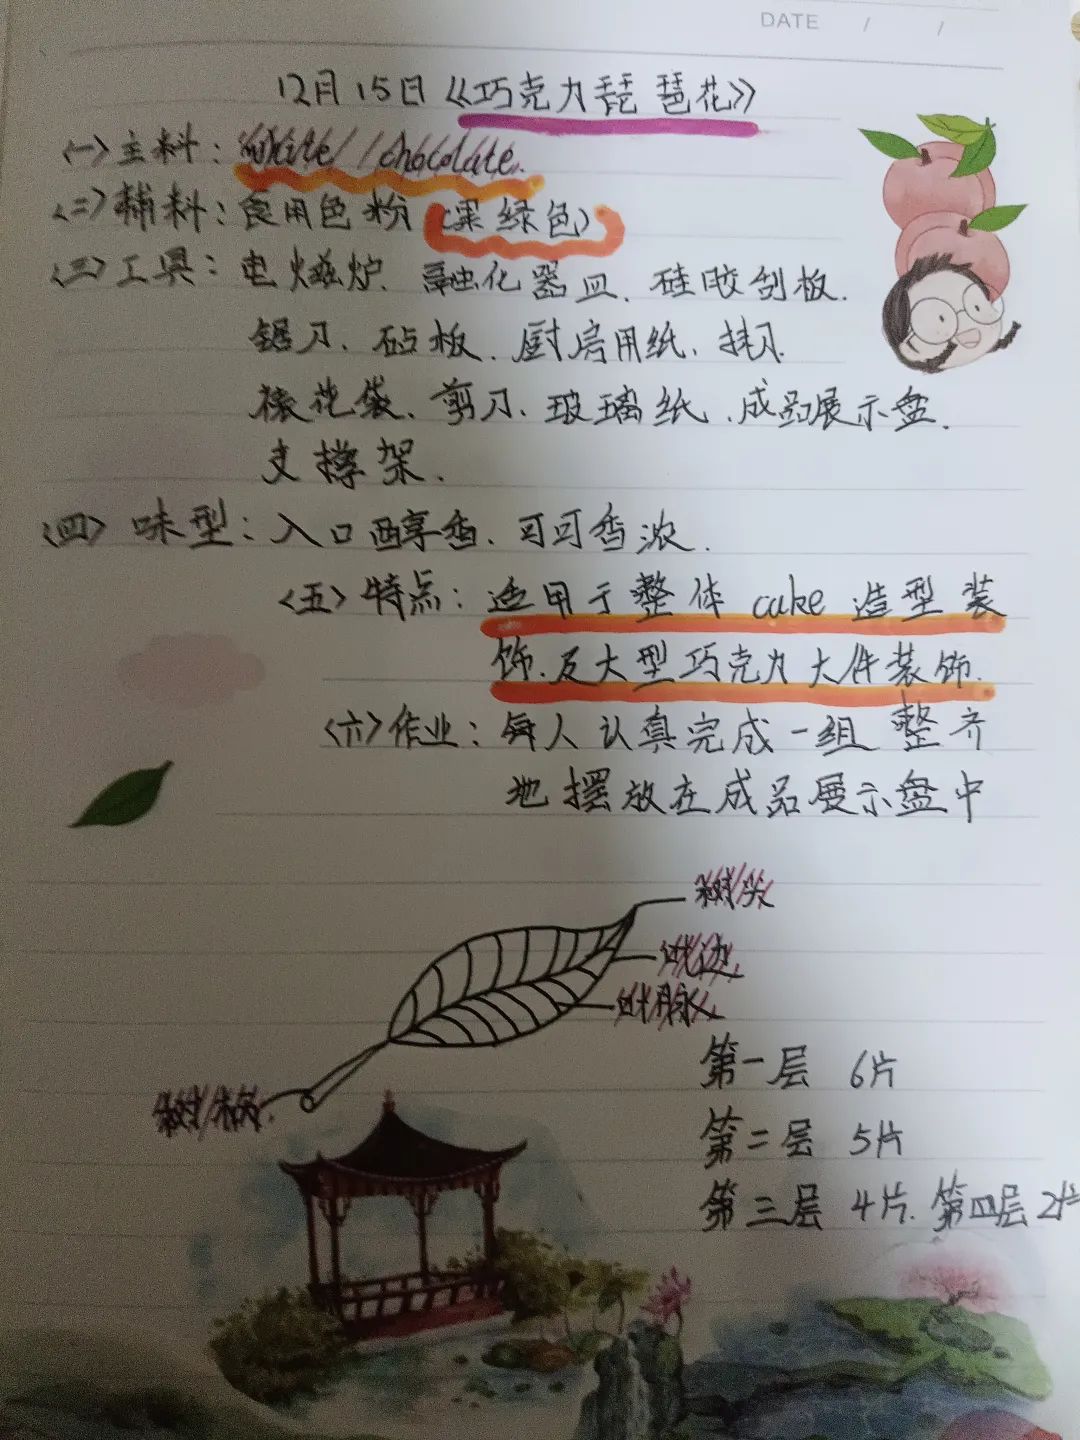 DATE / /
12月15日《巧克力琵琶花》
〈一〉主料：white chocolate.
〈二〉辅料：食用色粉（果绿色）
〈三〉工具：电磁炉.融化器皿.硅胶刮板.
锯刀.砧板.厨房用纸.抹刀
裱花袋.剪刀.玻璃纸.成品展示盘.
支撑架.
〈四〉味型：入口醇香.可可香浓.
〈五〉特点：适用于整体cake造型装
饰.及大型巧克力大件装饰.
〈六〉作业：每人认真完成一组 整齐
地摆放在成品展示盘中
树尖
叶边
叶脉
第一层 6片
树柄
第二层 5片
第三层 4片.第四层 2片